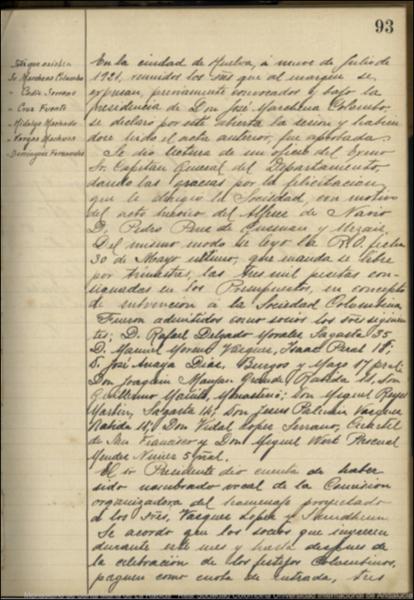 93
Sres. que asisten
Sr. Marchena Colombo
" Cádiz Serrano
" Cruz Fuente
" Hidalgo Machado
" Vargas Machuca
" Dominguez Fernandez
En la ciudad de Huelva, a nueve de Julio de
1921, reunidos los Sres que al margen se
expresan, previamente convocados y bajo la
presidencia de Don José Marchena Colombo,
se declaró por este abierta la sesión y habien
dose leido el acta anterior, fue aprobada.
Se dió lectura de un oficio del Excmo
Sr. Capitan General del Departamento,
dando las gracias por la felicitacion
que le dirigió la Sociedad, con motivo
del acto heroico del Alferez de Navio
D. Pedro Perez de Guzman y
Del mismo modo se leyó la R.O. fecha
30 de Mayo ultimo, que manda se libre
por trimestres, las tres mil pesetas con-
signadas en los Presupuestos, en concepto
de subvencion a la Sociedad Colombina
Fueron admitidos como socios los sres siguien
tes; D. Rafael Delgado Morales Sagasta 35
D. Manuel Vazquez, Isaac Peral 18;
D. José Anaya Diaz, Burgos y Mazo 17 pral;
Don Joaquin Rabida 11, Don
Guillermo Don Miguel Reyes
Martin, Sagasta 14; Don Jesus Vazquez
Rabida 14; Don Vidal Lopez Serrano, Cuartel
de San Francisco y Don Miguel Pascual
Mendez Nuñez 5
El sr Presidente dió cuenta de haber
sido nombrado vocal de la Comision
organizadora del homenaje proyectado
a los Sres, Vazquez Lopez y Sundheim
Se acordó que los socios que ingresen
durante este mes y hasta despues de
la celebración de los festejos Colombinos,
paguen como cuota de entrada, tres